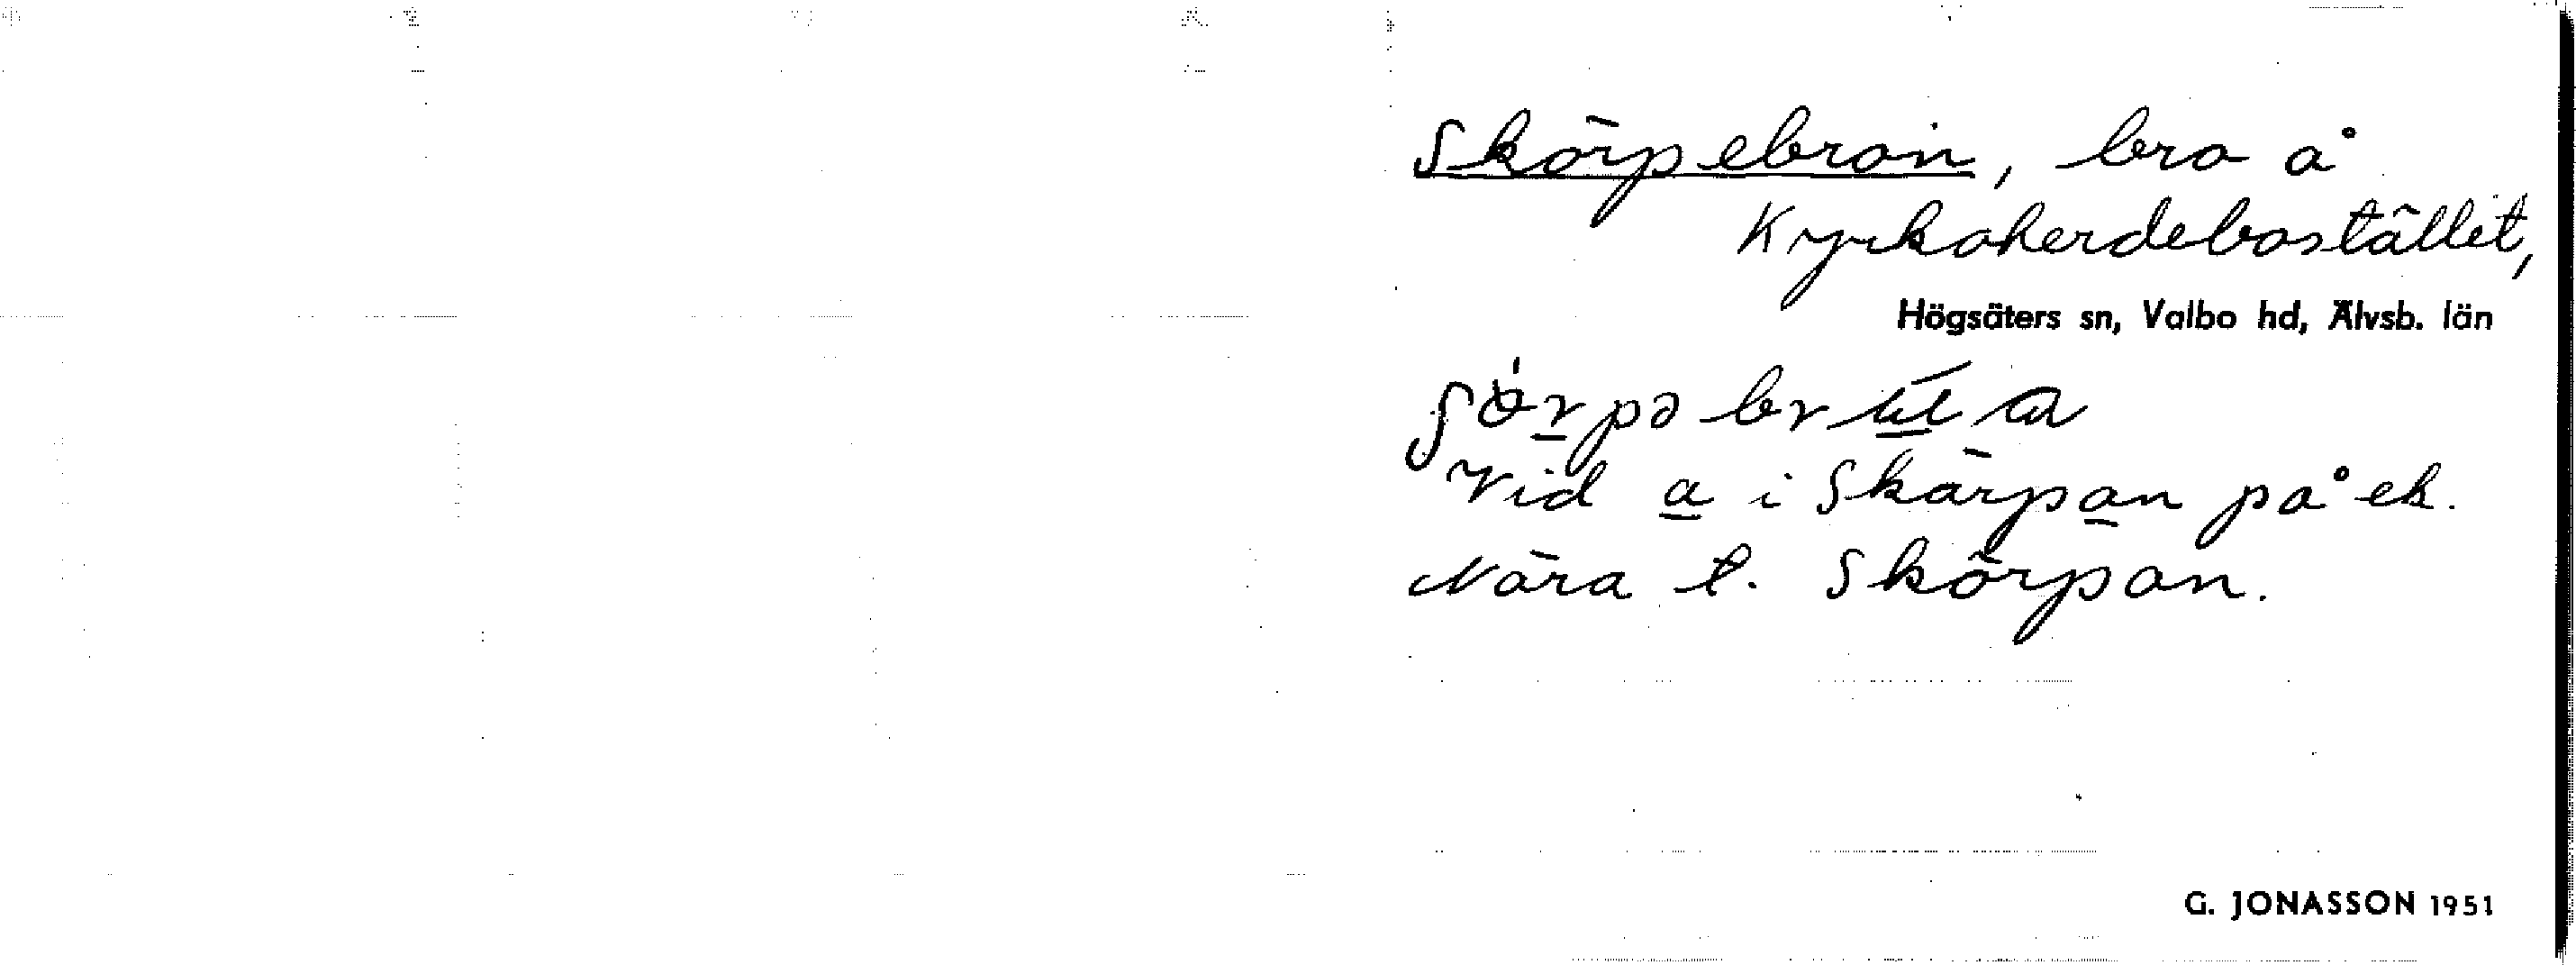 Skörpebron, bro å
Kyrkoherdebostället,
Högsäters sn, Valbo hd, Älvsb. län
Vid a i Skärpan på ek.
Nära t. Skörpan.
G. JONASSON 1951